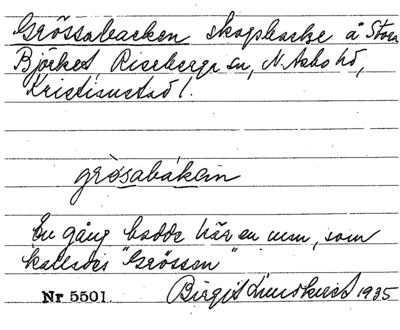 Grössabacken skogbacke å Stora
Björket, Riseberga sn, N. Åsbo hd,
Kristianstad l.
gròsabákan
En gång bodde här en man, som
kallades "Grössen"
Nr 5501. Birgit Lundkvist 1935